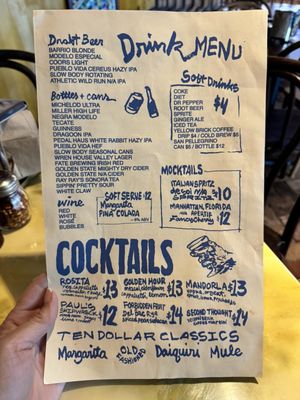 Drink MENU
Draft Beer
BARRIO BLONDE
MODELO ESPECIAL
COORS LIGHT
PUEBLO VIDA CEREUS HAZY IPA
SLOW BODY ROTATING
ATHLETIC WILD RUN N/A IPA
Bottles + cans
MICHELOB ULTRA
MILLER HIGH LIFE
NEGRA MODELO
TECATE
GUINNESS
DRAGOON IPA
PEDAL HAUS WHITE RABBIT HAZY IPA
PUEBLO VIDA HEF
SLOW BODY SEASONAL CANS
WREN HOUSE VALLEY LAGER
FATE BREWING IRISH RED
GOLDEN STATE MIGHTY DRY CIDER
GOLDEN STATE N/A CIDER
RAY RAY'S SONORA TEA
SIPPIN' PRETTY SOUR
WHITE CLAW
wine
RED
WHITE
ROSÉ
BUBBLES
SOFT SERVE $12
Margarita
PIÑA COLADA
Soft Drinks
$4
COKE
DIET
DR PEPPER
ROOT BEER
SPRITE
GINGER ALE
ICED TEA
YELLOW BRICK COFFEE
DRIP $4 / COLD BREW $6
SAN PELLEGRINO
CAN $5 / BOTTLE $12
MOCKTAILS
ITALIAN SPRITZ
SPIRITZ $10
MANHATTAN, FLORIDA
APERTIF
Fancy Cherry $12
COCKTAILS
ROSITA $13
GOLDEN HOUR $13
MANDORLA $13
PAUL'S
$12
FORBIDDEN FRUIT
$14
SECOND THOUGHT
$14
TEN DOLLAR CLASSICS
Margarita OLD FASHIONED Daiquiri Mule